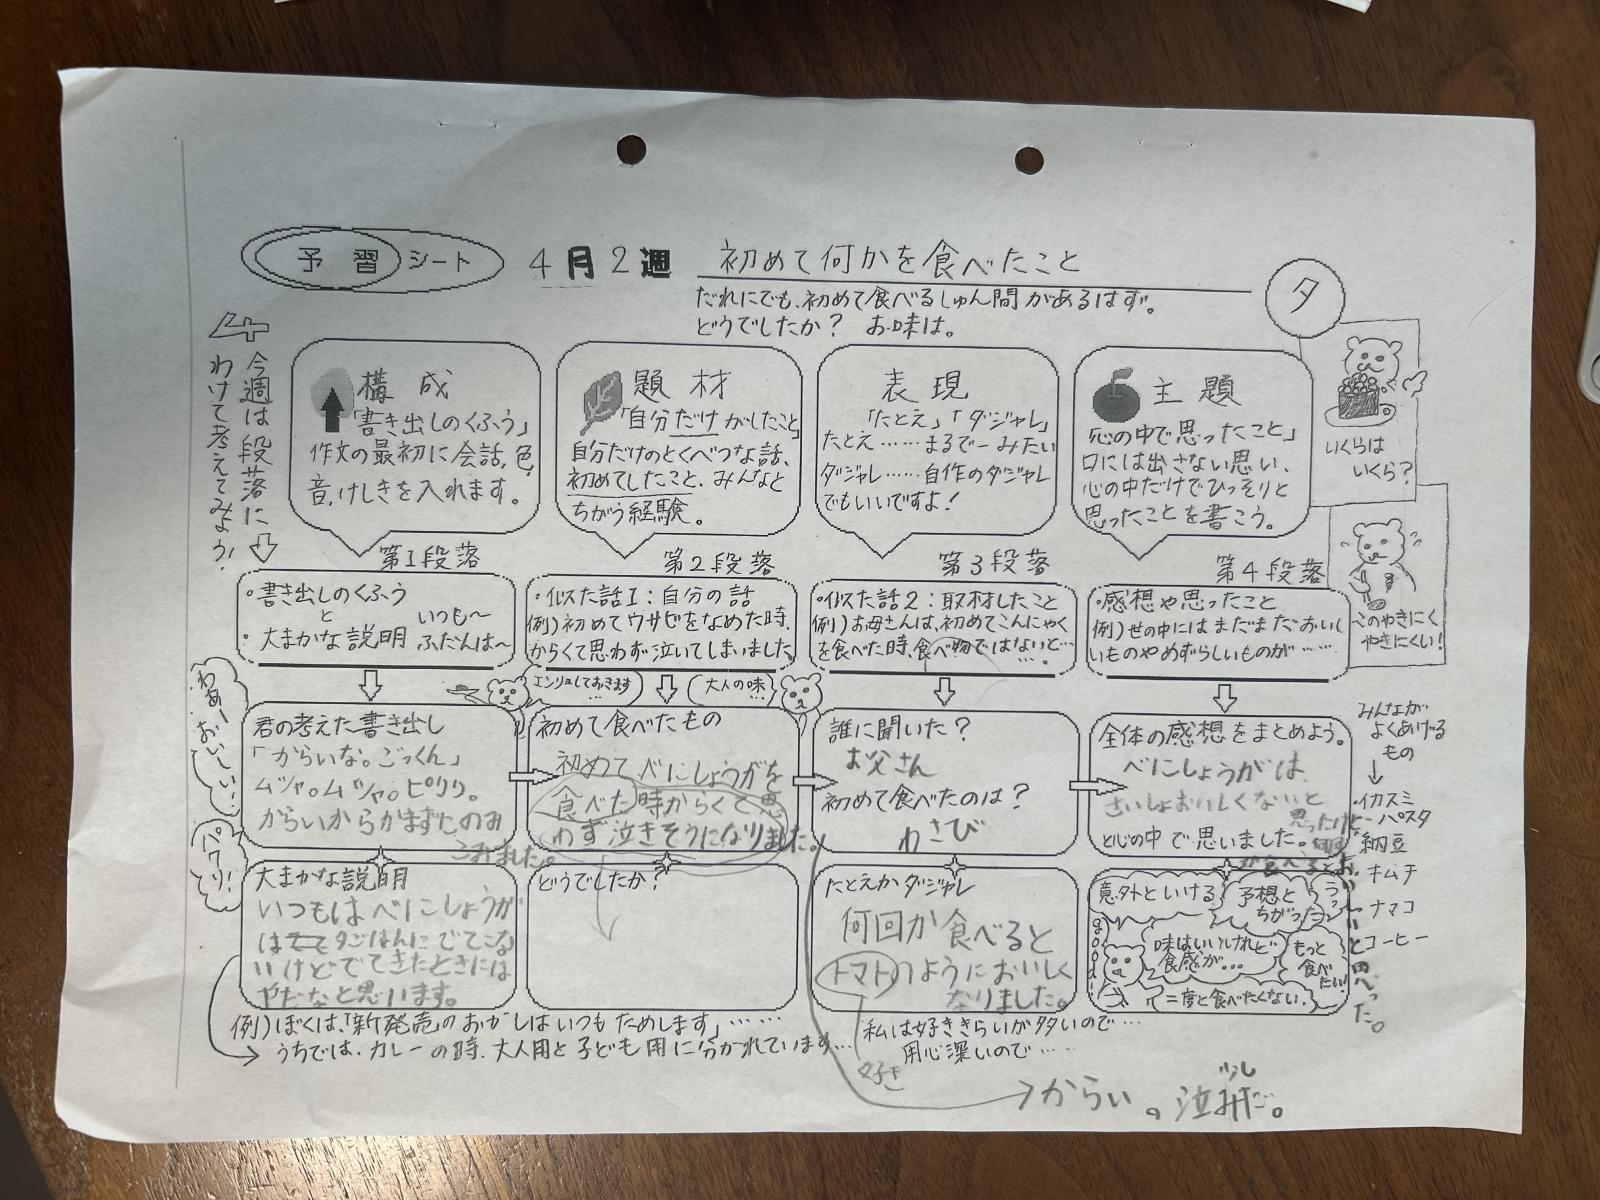 予習シート 4月2週 初めて何かを食べたこと
だれにでも、初めて食べるしゅん間があるはず。
どうでしたか？ お味は。
タ
今週は段落に
わけて考えてみよう！
構成
「書き出しのくふう」
作文の最初に会話、色、
音、けしきを入れます。
題材
「自分だけがしたこと」
自分だけのとくべつな話、
初めてしたこと、みんなと
ちがう経験。
表現
「たとえ」「ダジャレ」
たとえ……まるでーみたい
ダジャレ……自作のダジャレ
でもいいですよ！
主題
「心の中で思ったこと」
口には出さない思い、
心の中だけでひっそりと
思ったことを書こう。
いくらは
いくら？
このやきにく
やきにくい！
第1段落
・書き出しのくふう
と
・大まかな説明
いつも〜
ふだんは〜
第2段落
・似た話1：自分の話
例）初めてワサビをなめた時、
からくて思わず泣いてしまいました。
第3段落
・似た話2：取材したこと
例）お母さんは、初めてこんにゃく
を食べた時、食べ物ではないと…
…。
第4段落
・感想や思ったこと
例）世の中にはまだまだおいし
いものやめずらしいものが……
わあーおいしい…
パクリ！
君の考えた書き出し
「からいな。ごっくん」
ムシャ。ムシャ。ピリリ。
からいからかまずにのみ
こみました。
大まかな説明
いつもはべにしょうが
は夕ごはんにでてこな
いけどでてきたときには
やだなと思います。
例）ぼくは、「新発売」のおかしはいつもためします」……
うちでは、カレーの時、大人用と子ども用に分かれています…
エンリョしておきます
…
大人の味…
初めて食べたもの
初めてべにしょうがを
食べた時からくて思
わず泣きそうになりました。
どうでしたか？
誰に聞いた？
お父さん
初めて食べたのは？
わさび
たとえかダジャレ
何回か食べると
トマトのようにおいしく
なりました。
好き
私は好ききらいが多いので…
用心深いので……
からい。少し泣
全体の感想をまとめよう。
べにしょうがは、
さいしょおいしくないと
思ったけど
と心の中で思いました。
何回か食べるとおいしいと思った。
意外といける
予想と
ちがった
味はいいけれど
食感が…
もっと
食べ
たい！
二度と食べたくない。
みんなが
よくあげる
もの
・イカスミ
パスタ
・納豆
・キムチ
・ナマコ
・コーヒー